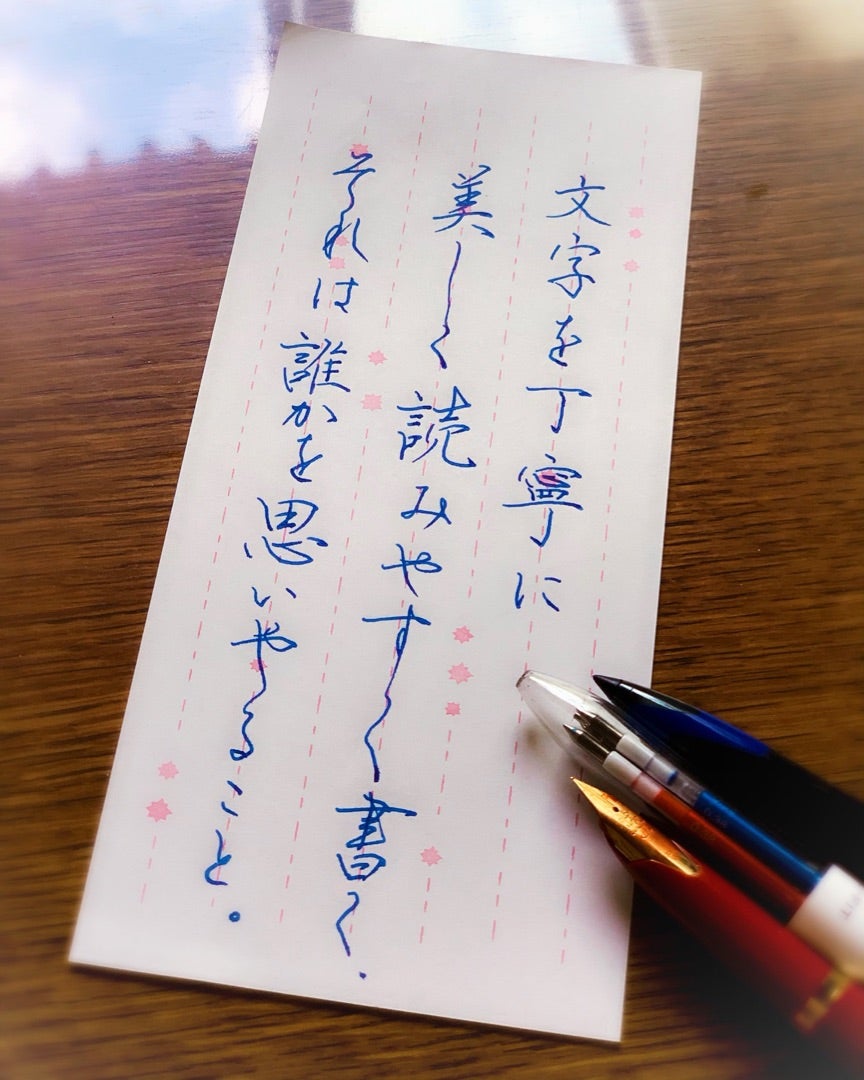 文字を丁寧に
美しく読みやすく書く.
それは誰かを思いやること。